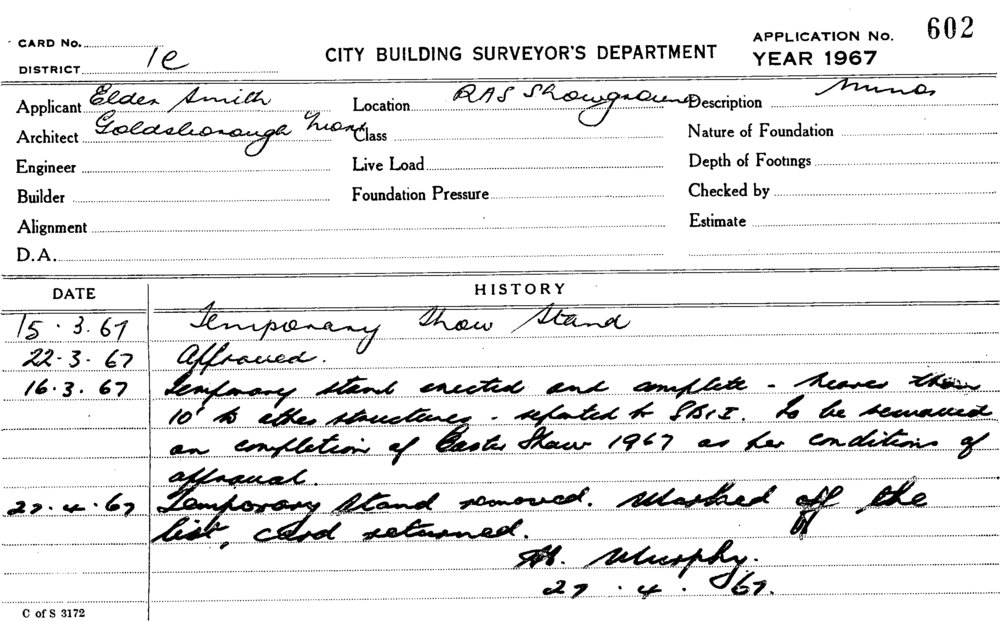 CARD No.
DISTRICT 1e
CITY BUILDING SURVEYOR'S DEPARTMENT
APPLICATION No. 602
YEAR 1967
Applicant Elder Smith
Location RAS Showground
Description Minor
Architect Goldsborough Mort
Class
Nature of Foundation
Engineer
Live Load
Depth of Footings
Builder
Foundation Pressure
Checked by
Alignment
Estimate
D.A.
DATE
HISTORY
15.3.67 Temporary Show Stand
22-3-67 Approved.
16.3.67 Temporary stand erected and complete - nearer than
10' to other structures - reported to SBI. To be removed
on completion of Easter Show 1967 as per conditions of
approval.
27.4.67 Temporary Stand removed. Marked off the
list, card returned.
Murphy.
27.4.67.
C of S 3172